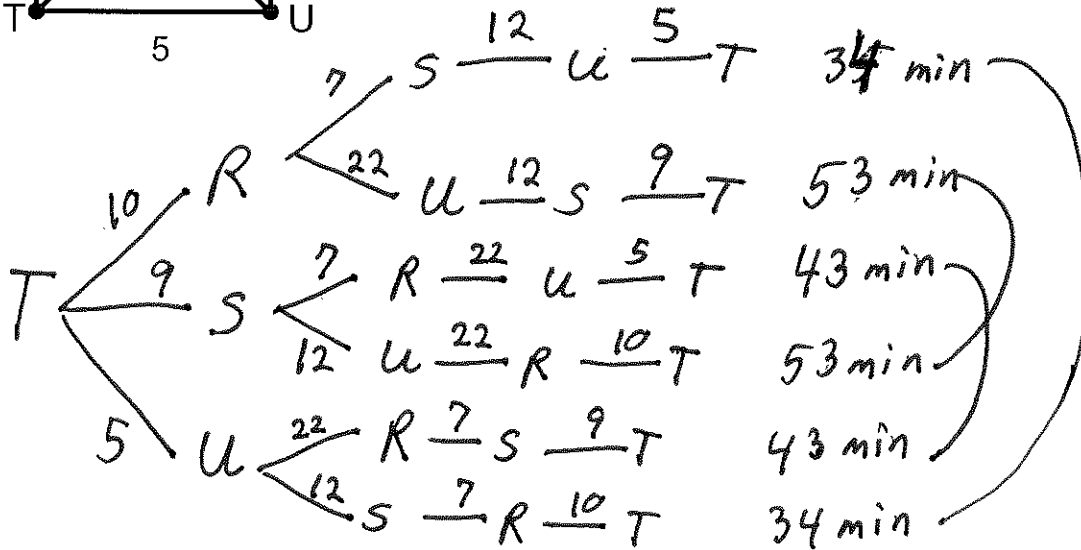 T U
5
7 S 12 U 5 T 34 min
10 R 22 U 12 S 9 T 53 min
T 9 S 7 R 22 U 5 T 43 min
12 U 22 R 10 T 53 min
5 U 22 R 7 S 9 T 43 min
12 S 7 R 10 T 34 min